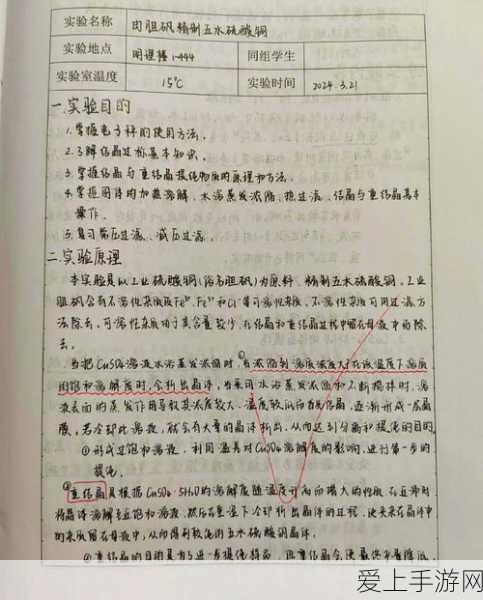 实验名称 由胆矾精制五水硫酸铜
实验地点 明理楼1-444 同组学生
实验室温度 15℃ 实验时间 2024.3.21
一.实验目的
1.掌握电子秤的使用方法。
2.了解结晶过程基本知识。
3.掌握结晶与重结晶提纯物质的原理和方法。
4.掌握固体的加热溶解、水浴蒸发浓缩、抽过滤、结晶与重结晶基本
操作。
5.复习常压过滤、减压过滤。
二.实验原理
本实验是以工业硫酸铜(俗名胆矾)为原料,精制五水硫酸铜。工业
胆矾含有不溶性杂质及Fe²⁺、Fe³⁺和Cl⁻等可溶性杂质。不溶性杂质可用过滤方
法除去。可溶性杂质由于其含量较少,在结晶和重结晶过程中留在母液中而除
去。
当把CuSO₄溶液水浴蒸发浓缩时,当浓缩到溶质浓度大于在该温度下溶质
的饱和溶解度时,会析出晶体,当采用水浴蒸发浓缩和不断搅拌时,溶
液表面的蒸发作用导致其浓度较大、温度较低而首先结晶,逐渐形成一层晶
膜,若冷却此溶液,就会有大量的晶体析出,从而达到分离和提纯的目的
①形成过饱和溶液,利用温差对CuSO₄溶解度的影响,进行第一步的
提纯。
②重结晶是根据CuSO₄·5H₂O的溶解度随温度升高而增大的性质,在近沸时
将晶体溶解至近饱和溶液,然后在室温下冷却析出晶体的过程,使夹杂在晶体中
的杂质留在母液中,从而得到较纯的五水硫酸铜晶体。
爱上手游网